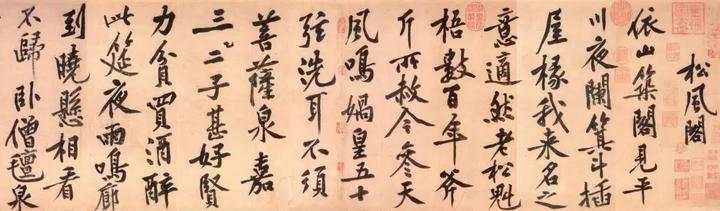 松風閣
依山築閣見平
川夜闌箕斗插
屋椽我來名之
意適然老松魁
梧數百年斧
斤所赦今參天
風鳴媧皇五十
弦洗耳不須
菩薩泉嘉
三二子甚好賢
力貧買酒醉
此筵夜雨鳴廊
到曉懸相看
不歸臥僧氈泉